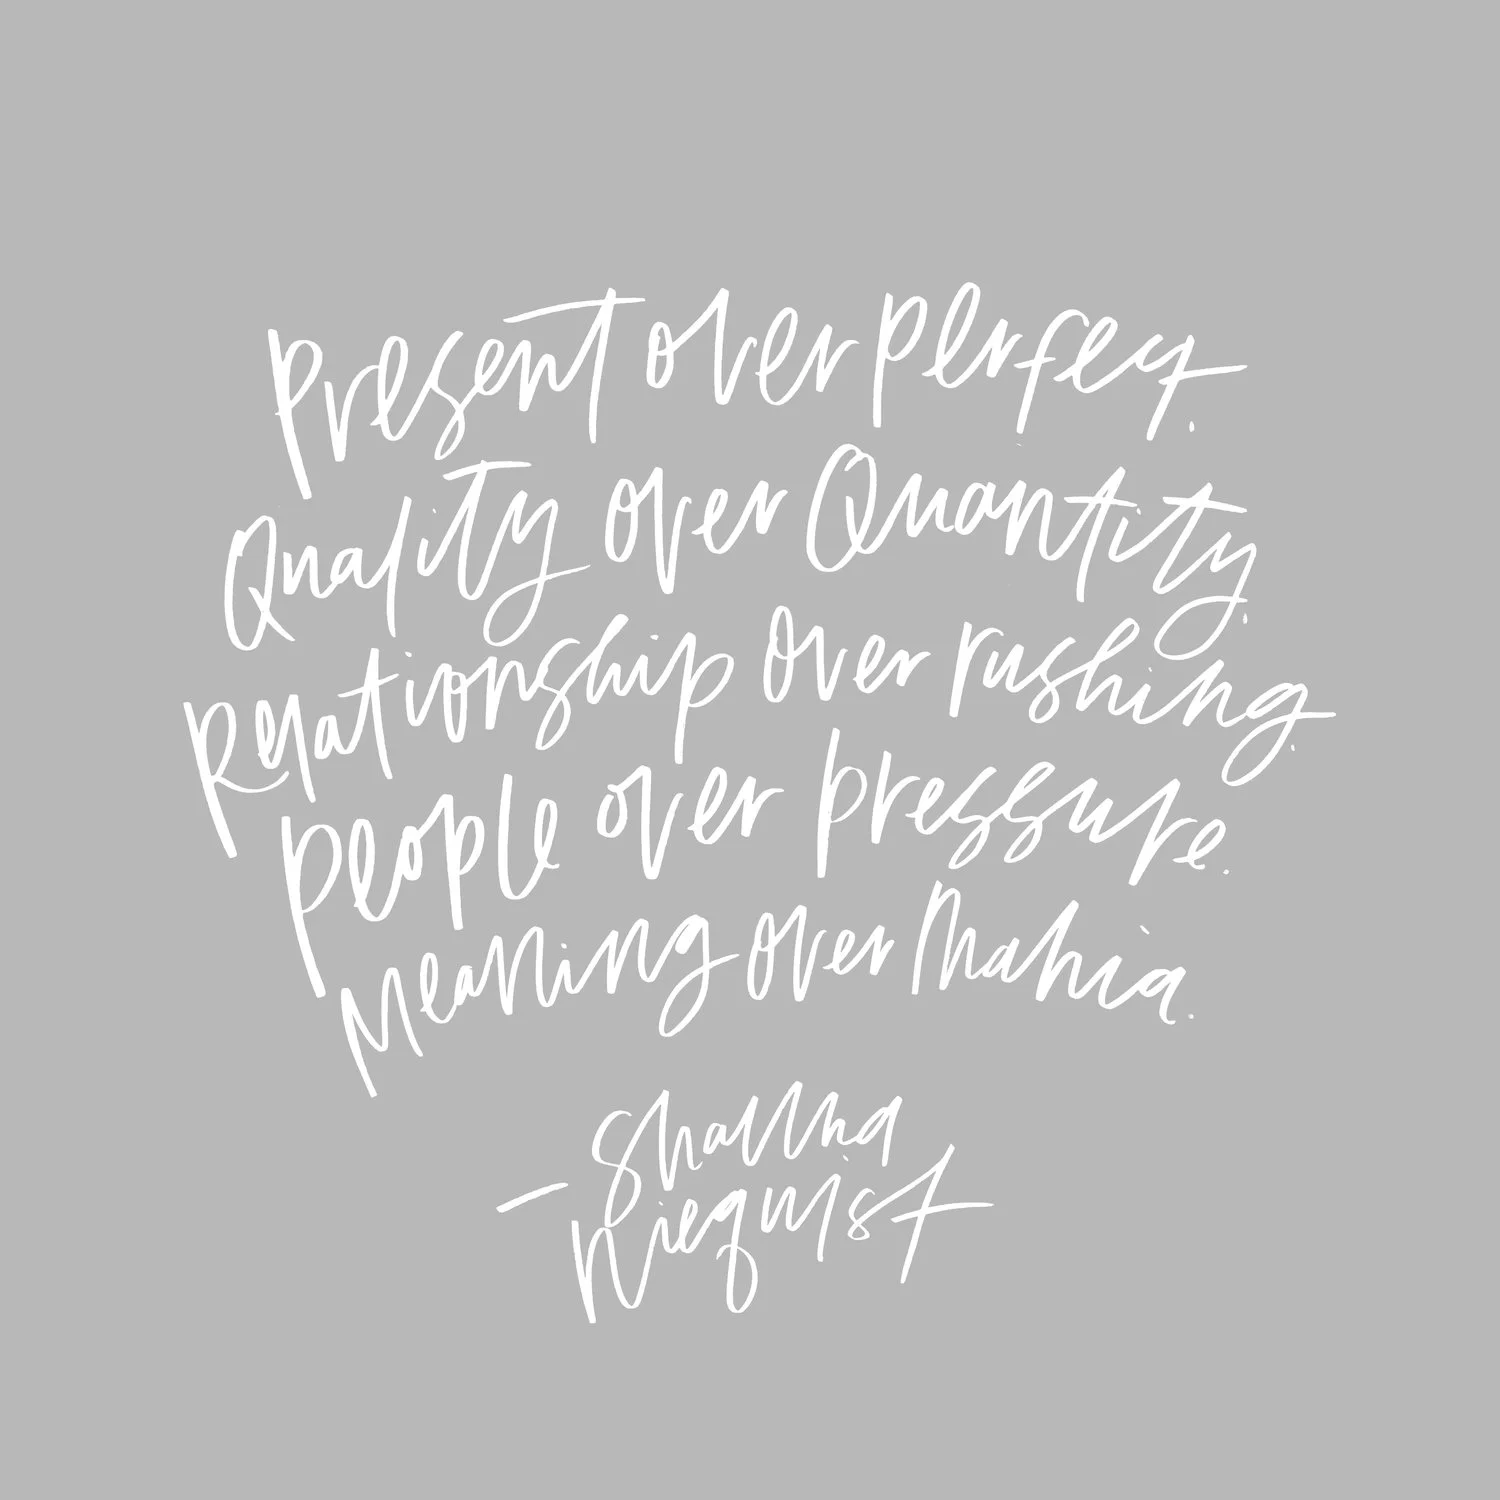 Present over perfect.
Quality over Quantity.
Relationship over rushing.
People over pressure.
Meaning over Mania.
- Shauna
Niequist